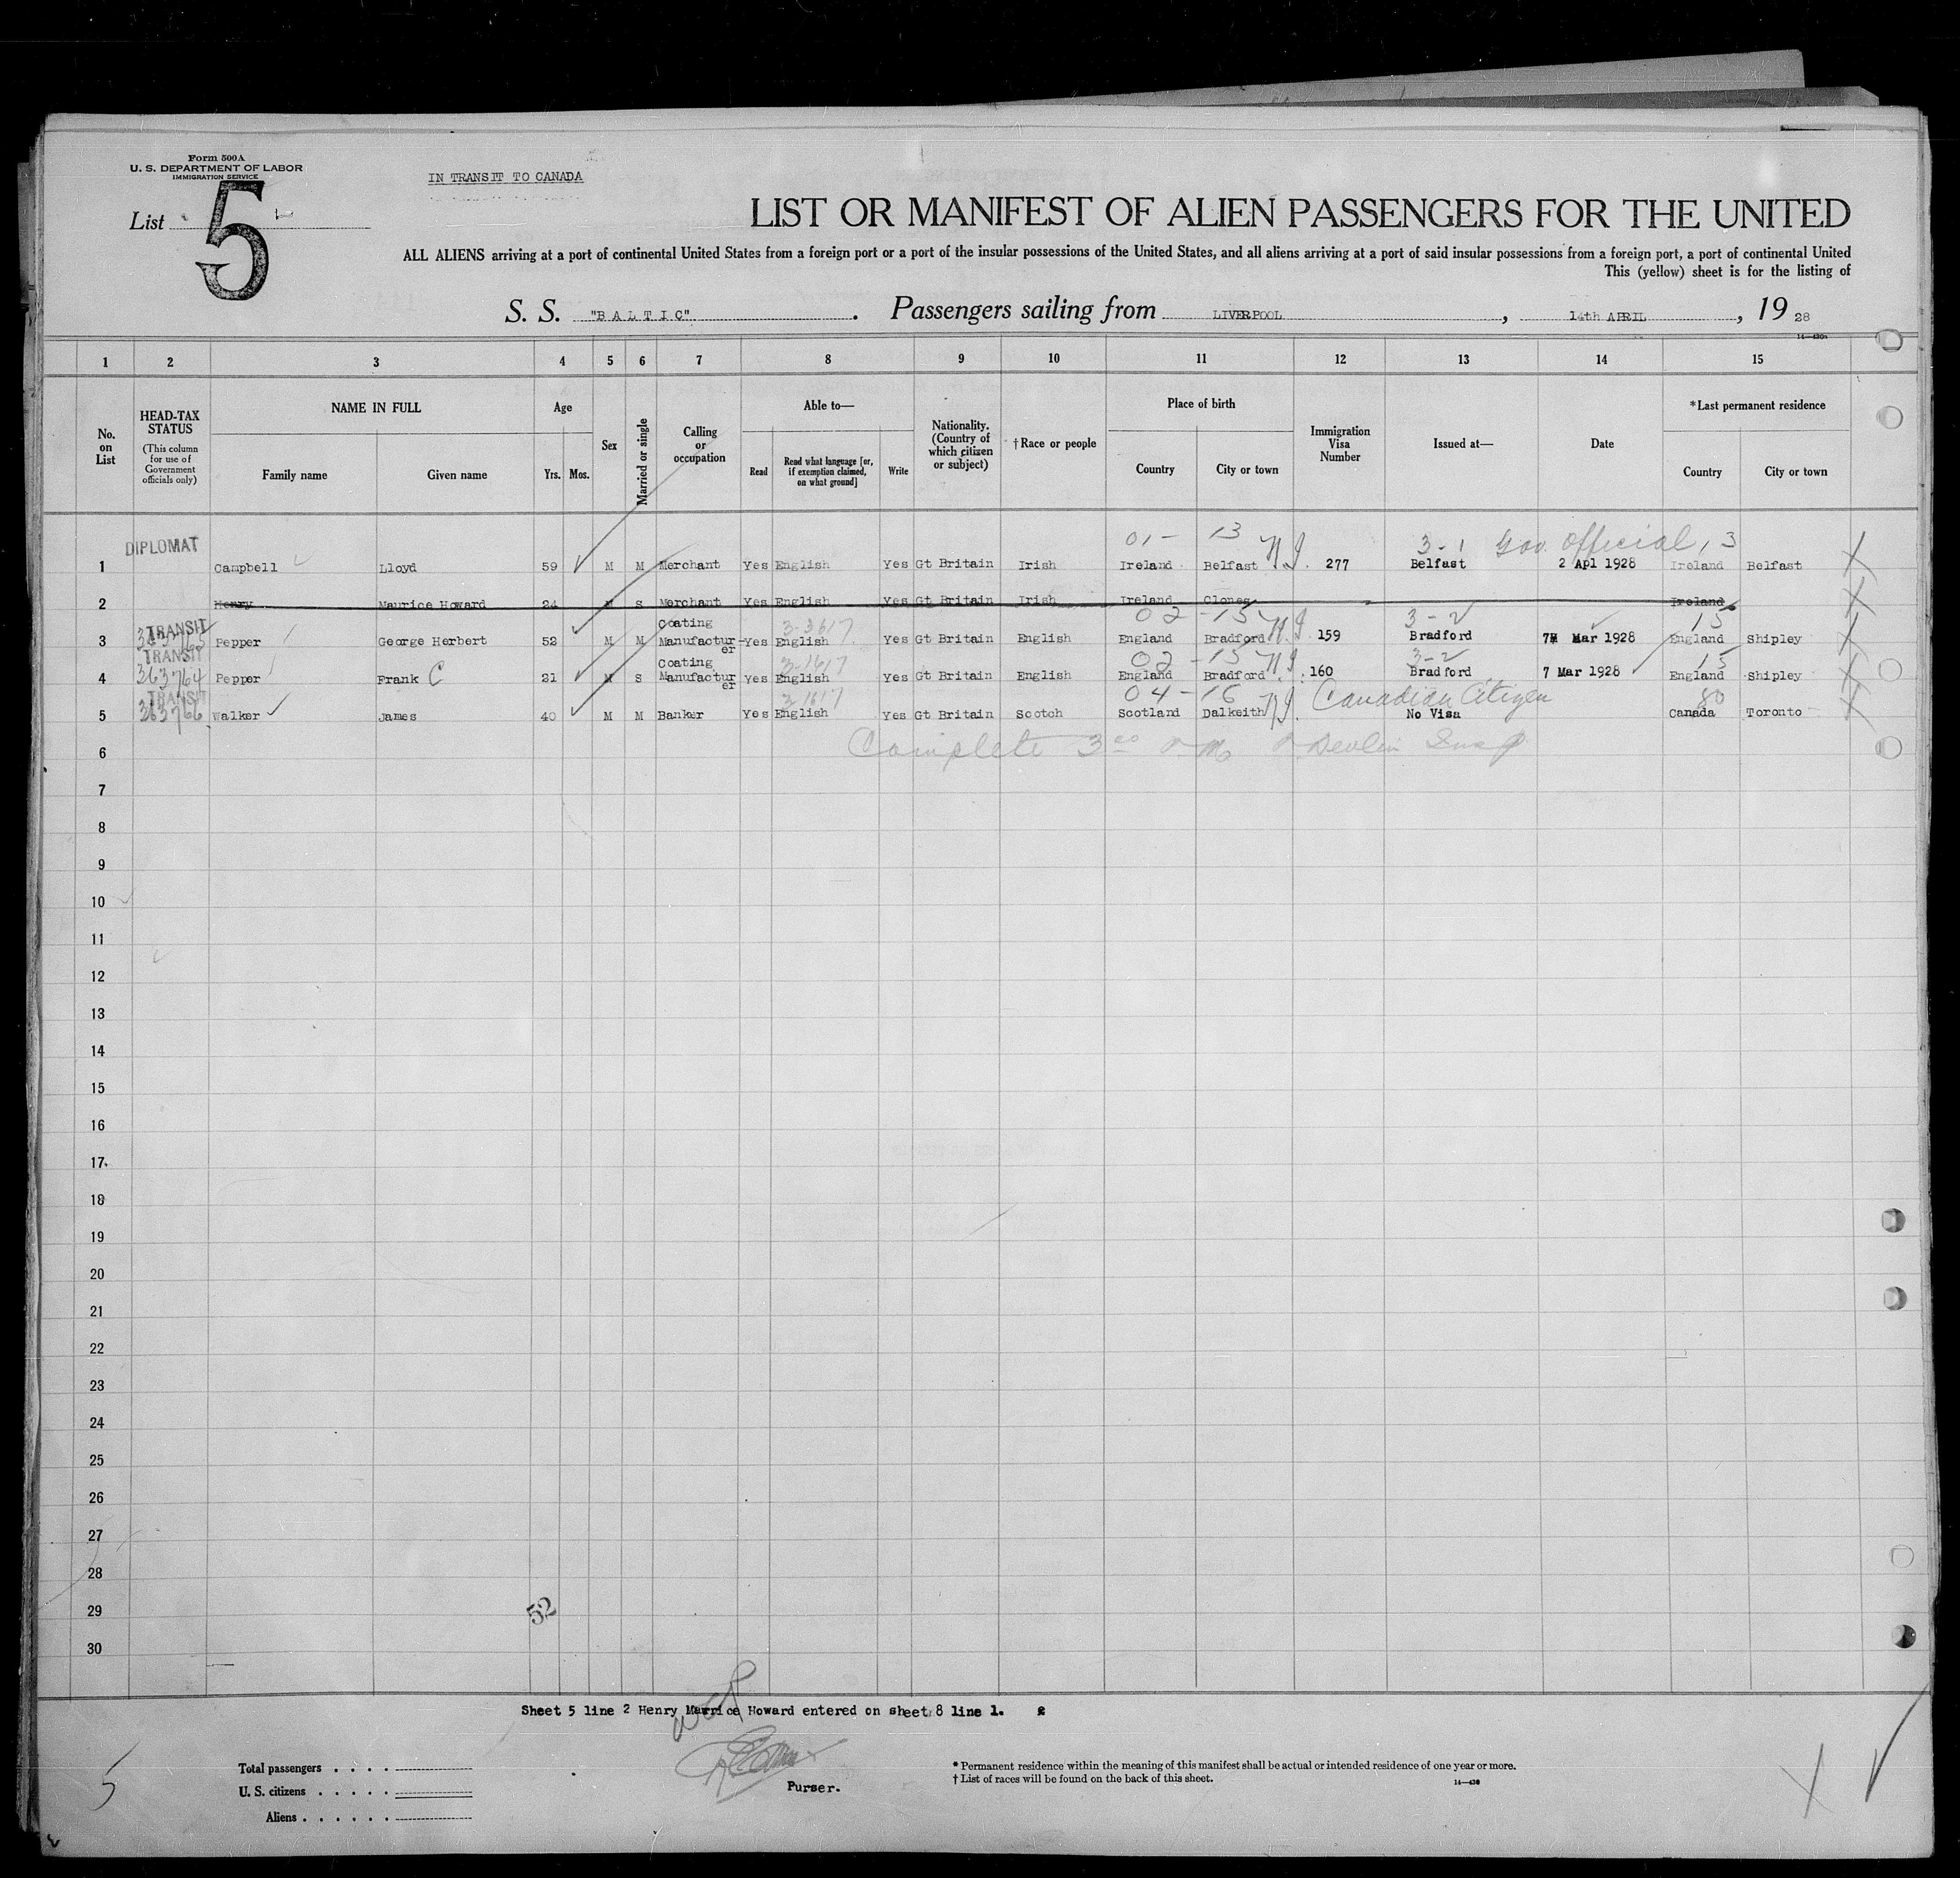 Form 500A
U. S. DEPARTMENT OF LABOR
IMMIGRATION SERVICE
IN TRANSIT TO CANADA
List 5
LIST OR MANIFEST OF ALIEN PASSENGERS FOR THE UNITED
ALL ALIENS arriving at a port of continental United States from a foreign port or a port of the insular possessions of the United States, and all aliens arriving at a port of said insular possessions from a foreign port, a port of continental United
This (yellow) sheet is for the listing of
S. S. "BALTIC" . Passengers sailing from LIVERPOOL , 14th APRIL , 19 28
1 2 3 4 5 6 7 8 9 10 11 12 13 14 15
No. on List
HEAD-TAX STATUS
(This column for use of Government officials only)
NAME IN FULL
Family name Given name
Age
Yrs. Mos.
Sex
Married or single
Calling or occupation
Able to—
Read
Read what language [or, if exemption claimed, on what ground]
Write
Nationality. (Country of which citizen or subject)
†Race or people
Place of birth
Country City or town
Immigration Visa Number
Issued at—
Date
*Last permanent residence
Country City or town
DIPLOMAT 01- 13 3-1 Gov. official, 13
1 Campbell Lloyd 59 M M Merchant Yes English Yes Gt Britain Irish Ireland Belfast 277 Belfast 2 Apl 1928 Ireland Belfast
2 Henry Maurice Howard 24 M S Merchant Yes English Yes Gt Britain Irish Ireland Clones Ireland
TRANSIT Coating 02-15 3-2 15
3 Pepper George Herbert 52 M M Manufacturer Yes English Yes Gt Britain English England Bradford 159 Bradford 7 Mar 1928 England Shipley
TRANSIT Coating 02-15 3-2 15
4 363764 Pepper Frank C 21 M S Manufacturer Yes English Yes Gt Britain English England Bradford 160 Bradford 7 Mar 1928 England Shipley
TRANSIT 04-16 Canadian Citizen 80
5 363766 Walker James 40 M M Banker Yes English Yes Gt Britain Scotch Scotland Dalkeith No Visa Canada Toronto
6 Complete 3 00 P.M. Devlin Insp
7
8
9
10
11
12
13
14
15
16
17
18
19
20
21
22
23
24
25
26
27
28
29
52
30
Sheet 5 line 2 Henry Maurice Howard entered on sheet 8 line 1.
Total passengers . . . .
U. S. citizens . . . . .
Aliens . . . . . .
5
Purser.
* Permanent residence within the meaning of this manifest shall be actual or intended residence of one year or more.
† List of races will be found on the back of this sheet.
14—430